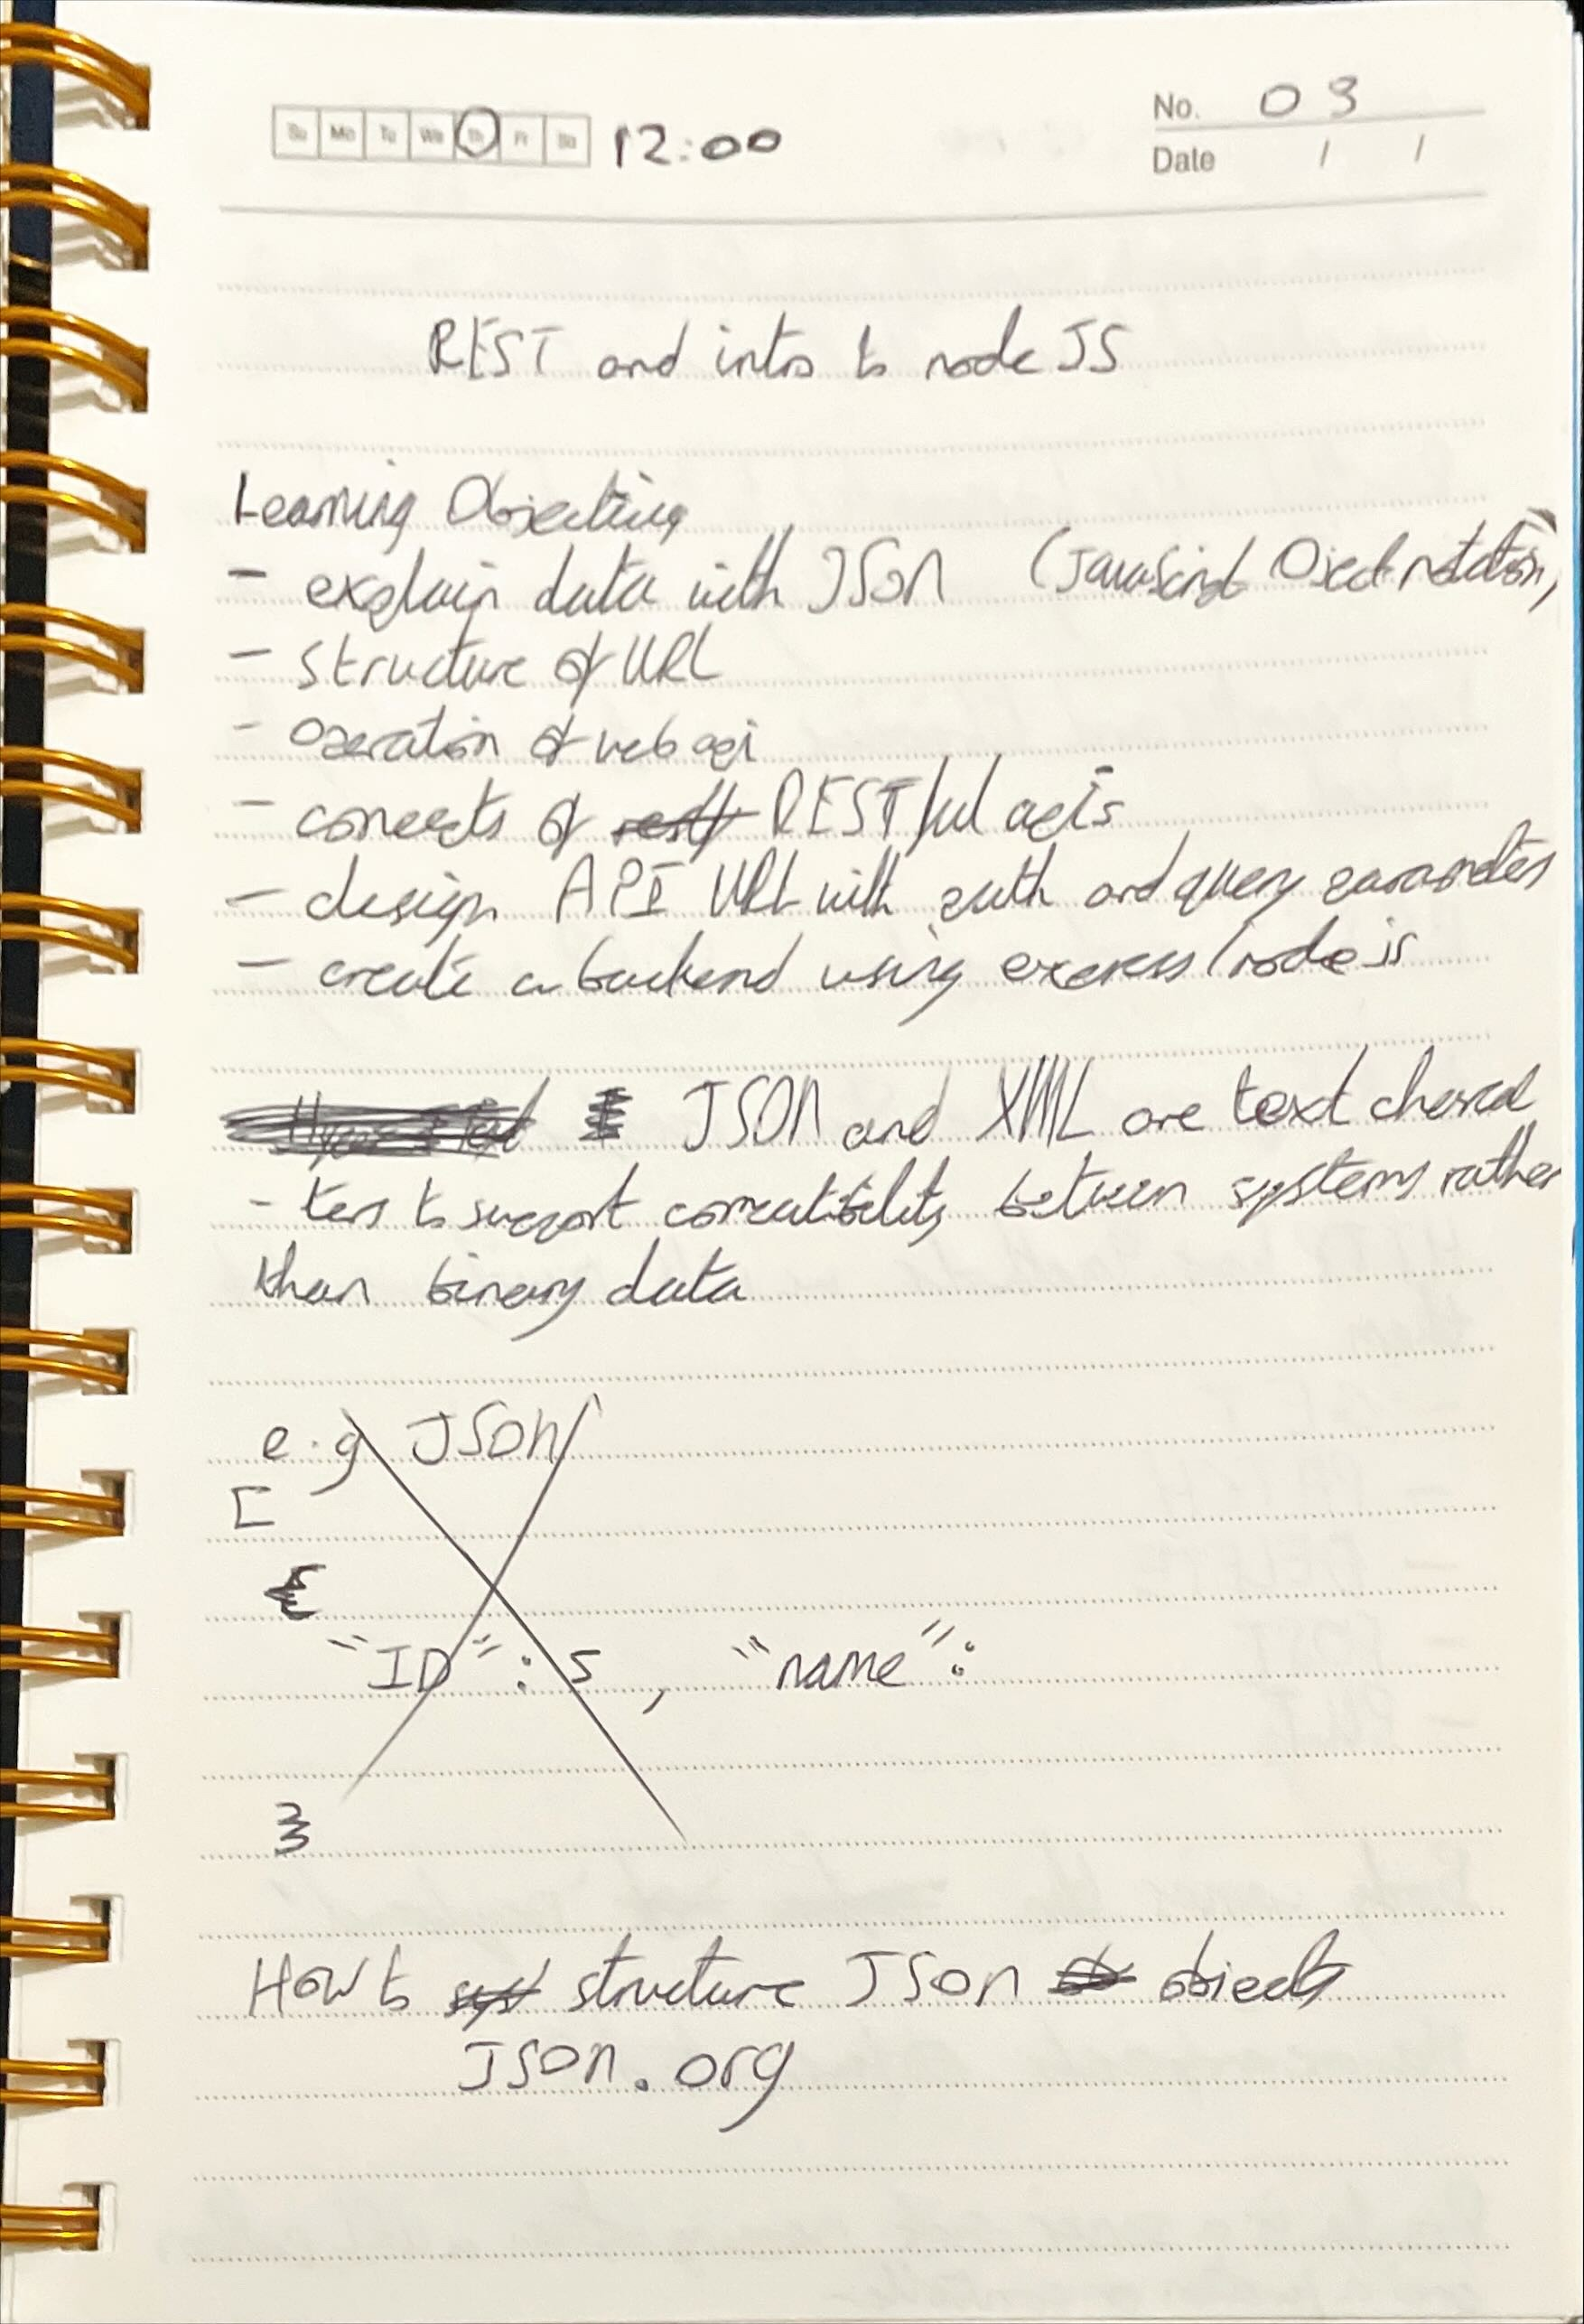 Su Mo Tu We Th Fr Sa 12:00
No. 03
Date / /
REST and intro to node JS
Learning Objectives
- explain data with JSON (JavaScript Object notation)
- structure of URL
- operation of web api
- concepts of RESTful apis
- design API URL with path and query parameters
- create a backend using express/node js
JSON and XML are text charac
- ters to support compatibility between systems rather
than binary data
e.g JSON
[
{
"ID" : 5, "name" :
}
How to structure JSON objects
JSON.org